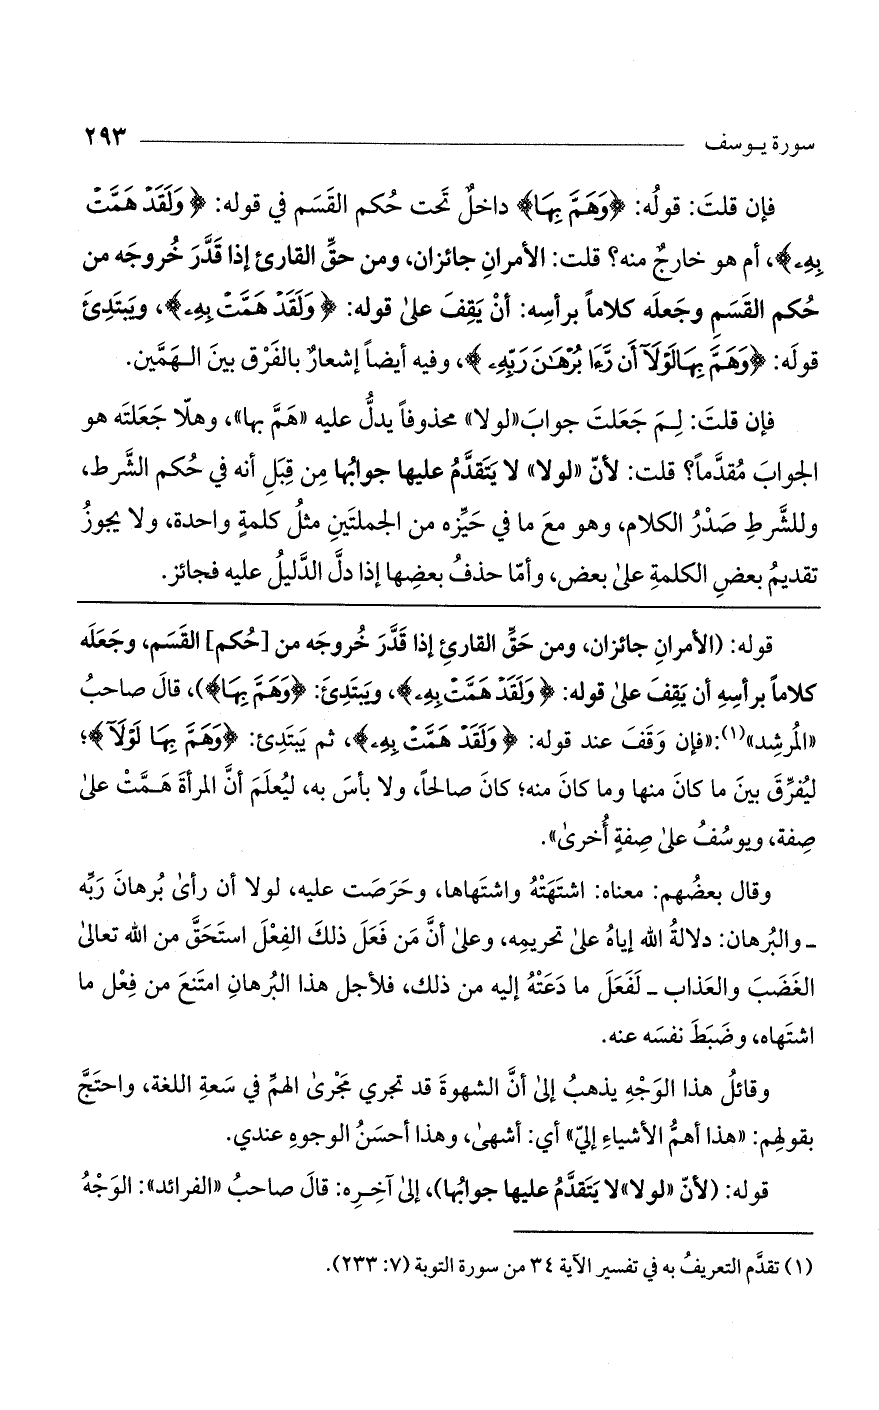 سورة يوسف ٢٩٣
فإن قلتَ: قولُه: ﴿وَهَمَّ بِهَا﴾ داخلٌ تَحت حُكم القَسَم في قوله: ﴿وَلَقَدْ هَمَّتْ
بِهِۦ﴾، أم هو خارجٌ منه؟ قلت: الأمرانِ جائزان، ومن حقِّ القارئ إذا قَدَّرَ خُروجَه من
حُكم القَسَمِ وجَعلَه كلاماً برأسِه: أنْ يَقِفَ علىٰ قوله: ﴿وَلَقَدْ هَمَّتْ بِهِۦ﴾، ويَبتَدِئَ
قولَه: ﴿وَهَمَّ بِهَا لَوْلَآ أَن رَّءَا بُرْهَـٰنَ رَبِّهِۦ﴾، وفيه أيضاً إشعارٌ بالفَرْق بينَ الـهَمَّين.
فإن قلتَ: لِـمَ جَعَلتَ جوابَ «لولا» محذوفاً يدلُّ عليه «هَمَّ بها»، وهلّا جَعَلتَه هو
الجوابَ مُقدَّماً؟ قلت: لأنّ «لولا» لا يَتَقدَّمُ عليها جوابُها مِن قِبَلِ أنه في حُكم الشَّرط،
وللشَّرطِ صَدْرُ الكلام، وهو معَ ما في حَيِّزِه من الجملتَينِ مثلُ كلمةٍ واحدة، ولا يجوزُ
تقديمُ بعضِ الكلمةِ علىٰ بعض، وأمّا حذفُ بعضِها إذا دلَّ الدَّليلُ عليه فجائز.
قوله: (الأمرانِ جائزان، ومن حَقِّ القارئِ إذا قَدَّرَ خُروجَه من [حُكم] القَسَم، وجَعَلَه
كلاماً برأسِهِ أن يَقِفَ علىٰ قوله: ﴿وَلَقَدْ هَمَّتْ بِهِۦ﴾، ويَبتَدِئَ: ﴿وَهَمَّ بِهَا﴾)، قالَ صاحبُ
«المُرشِد»(١): «فإن وَقَفَ عند قوله: ﴿وَلَقَدْ هَمَّتْ بِهِۦ﴾، ثم يَبتَدِئ: ﴿وَهَمَّ بِهَا لَوْلَآ﴾؛
ليُفرِّقَ بينَ ما كانَ منها وما كانَ منه؛ كانَ صالحاً، ولا بأسَ به، ليُعلَمَ أنَّ المرأةَ هَـمَّتْ علىٰ
صِفة، ويوسُفُ علىٰ صِفةٍ أُخرىٰ».
وقال بعضُهم: معناه: اشتَهَتْهُ واشتَهاها، وحَرَصَت عليه، لولا أن رأىٰ بُرهانَ ربِّه
ـ والبُرهان: دلالةُ الله إياهُ علىٰ تحريمِه، وعلىٰ أنَّ مَن فَعَلَ ذلكَ الفِعْلَ استَحَقَّ من الله تعالىٰ
الغَضَبَ والعَذاب ـ لَفَعَلَ ما دَعَتْهُ إليه من ذلك، فلأجل هذا البُرهانِ امتَنعَ من فِعْل ما
اشتَهاه، وضَبَطَ نفسَه عنه.
وقائلُ هذا الوَجْهِ يذهبُ إلىٰ أنَّ الشهوةَ قد تجري مَجْرىٰ الهمِّ في سَعةِ اللغة، واحتَجَّ
بقولِهم: «هذا أهمُّ الأشياءِ إليّ» أي: أشهىٰ، وهذا أحسَنُ الوجوهِ عندي.
قوله: (لأنّ «لولا» لا يَتَقدَّمُ عليها جوابُها)، إلىٰ آخِـرِه: قالَ صاحبُ «الفرائد»: الوَجْهُ
(١) تقدَّم التعريفُ به في تفسير الآية ٣٤ من سورة التوبة (٧: ٢٣٣).